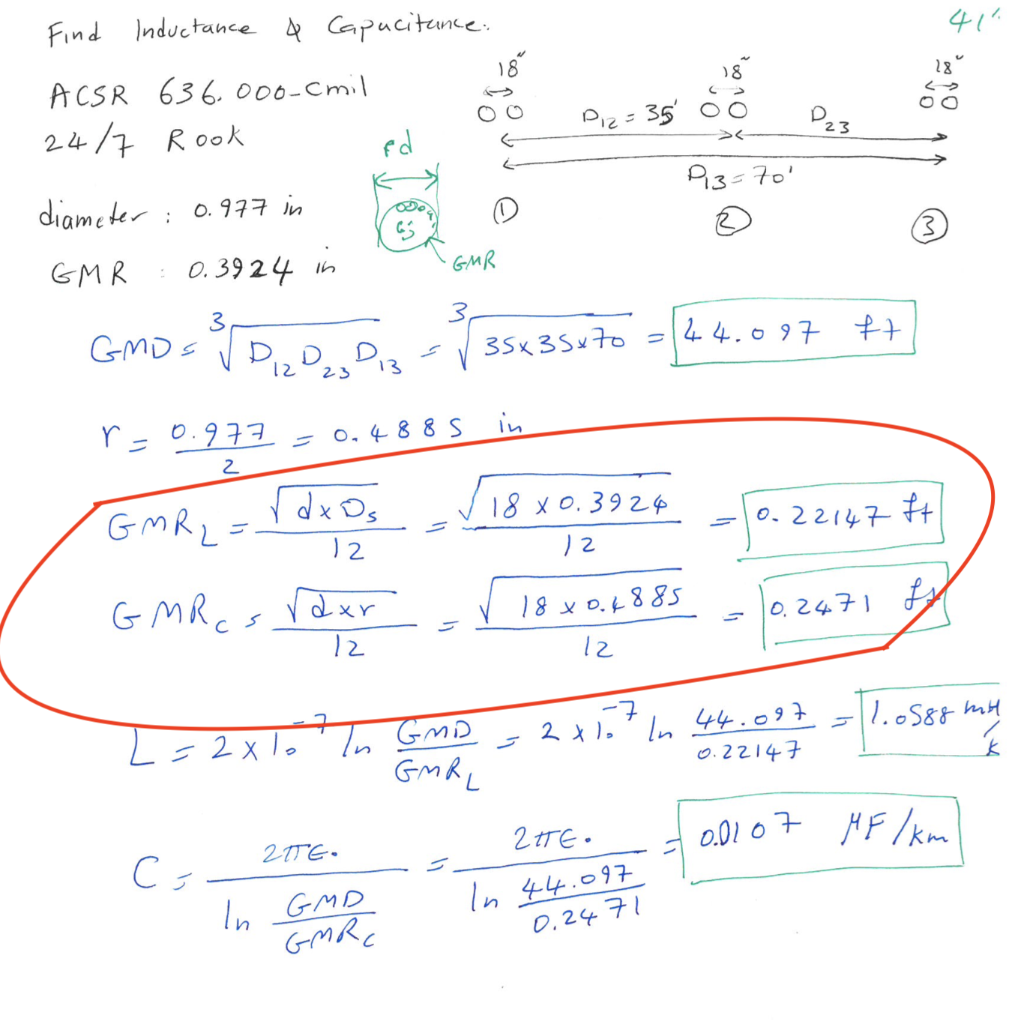 Find Inductance & Capacitance.
41"
ACSR 636.000-Cmil
24/7 Rook
diameter : 0.977 in
GMR : 0.3924 in
18" 18" 18"
D₁₂ = 35' D₂₃
D₁₃ = 70'
① ② ③
GMR
GMD = ∛(D₁₂ D₂₃ D₁₃) = ∛(35x35x70) = 44.097 ft
r = 0.977/2 = 0.4885 in
GMR_L = √(d x Ds)/12 = √(18 x 0.3924)/12 = 0.22147 ft
GMR_C = √(d x r)/12 = √(18 x 0.4885)/12 = 0.2471 ft
L = 2 x 10⁻⁷ ln GMD/GMR_L = 2 x 10⁻⁷ ln 44.097/0.22147 = 1.0588 mH/k
C = 2πε₀/(ln GMD/GMR_C) = 2πε₀/(ln 44.097/0.2471) = 0.0107 μF/km